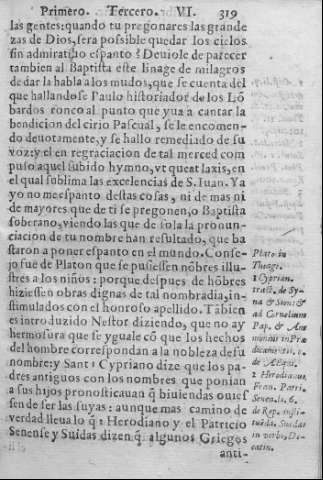 Primero. Tercero. VI. 319
las gentes: quando tu pregonares las grande
zas de Dios, sera possible quedar los cielos
sin admiratiõ espanto? Deuiole de parecer
tambien al Baptista este linage de milagros
de dar la habla a los mudos, que se cuenta del
que hallandose Paulo historiador de los Lõ
bardos ronco al punto que yua a cantar la
bendicion del cirio Pascual, se le encomen-
do deuotamente, y se hallo remediado de su
voz: y el en regraciacion de tal merced com
puso aquel subido hymno, vt queat laxis, en
el qual sublima las excelencias de S. Iuan. Ya
yo no me espanto destas cosas, ni de mas ni
de mayores que de ti se pregonen, o Baptista
soberano, viendo las que de sola la pronun-
ciacion de tu nombre han resultado, que ba
staron a poner espanto en el mundo. Conse-
jo fue de Platon que se pusiessen nõbres illu-
stres a los niños: porque despues de hõbres
hiziessen obras dignas de tal nombradia, in-
stimulados con el honroso apellido. Tãbien
es introduzido Nestor diziendo, que no ay
hermosura que se yguale cõ que los hechos
del hombre correspondan a la nobleza de su
nombre: y Sant Cypriano dize que los pa-
dres antiguos con los nombres que ponian
a sus hijos pronosticauan q̃ biuiendas ouies
sen de ser las suyas: aunque mas camino de
verdad lleua lo q̃ Herodiano y el Patricio
Senense y Suidas dizen q̃ algunos Griegos
anti-
Plato in
Theagi.
Cyprian.
tract. de Sy-
na & Sion: &
ad Cornelium
Pap. & Am
monius in Præ
dicamentis. c.
de Æqui.
2 Herodianus.
Fran. Patri.
Senen. li. 6.
de Rep. insti-
tuẽda. Suidas
in verbo, De-